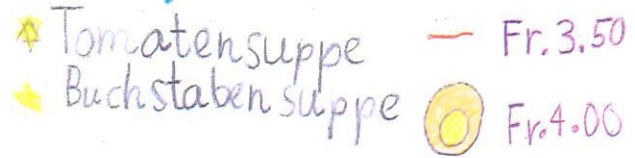 Tomatensuppe — Fr. 3.50
Buchstabensuppe Fr. 4.00